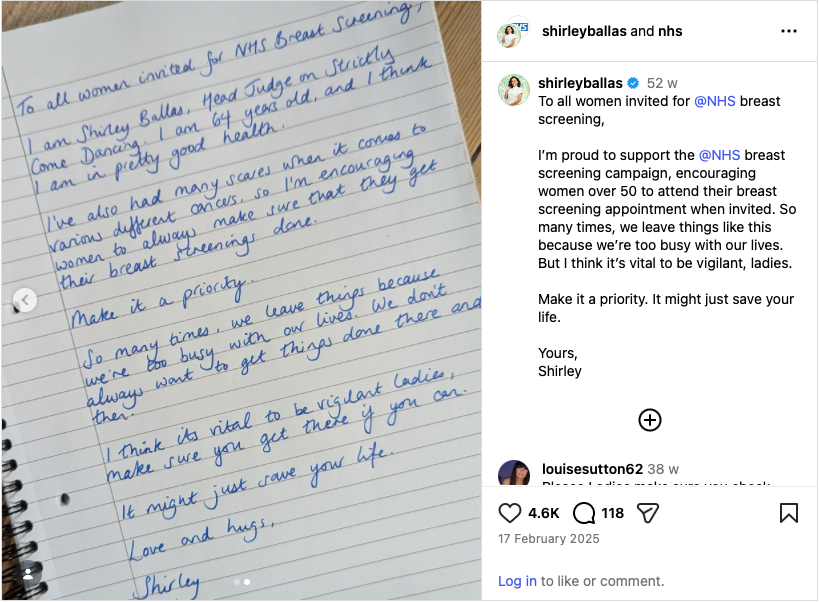 To all women invited for NHS Breast Screening,
I am Shirley Ballas, Head Judge on Strictly
Come Dancing. I am 64 years old, and I think
I am in pretty good health.
I've also had many scares when it comes to
various different cancers, so I'm encouraging
women to always make sure that they get
their breast screenings done.
Make it a priority.
So many times, we leave things because
we're too busy with our lives. We don't
always want to get things done there and
then.
I think its vital to be vigilant ladies,
make sure you get there if you can.
It might just save your life.
Love and hugs,
Shirley
shirleyballas and nhs
shirleyballas 52 w
To all women invited for @NHS breast
screening,
I'm proud to support the @NHS breast
screening campaign, encouraging
women over 50 to attend their breast
screening appointment when invited. So
many times, we leave things like this
because we're too busy with our lives.
But I think it's vital to be vigilant, ladies.
Make it a priority. It might just save your
life.
Yours,
Shirley
louisesutton62 38 w
Please Ladies make sure you check
4.6K 118
17 February 2025
Log in to like or comment.